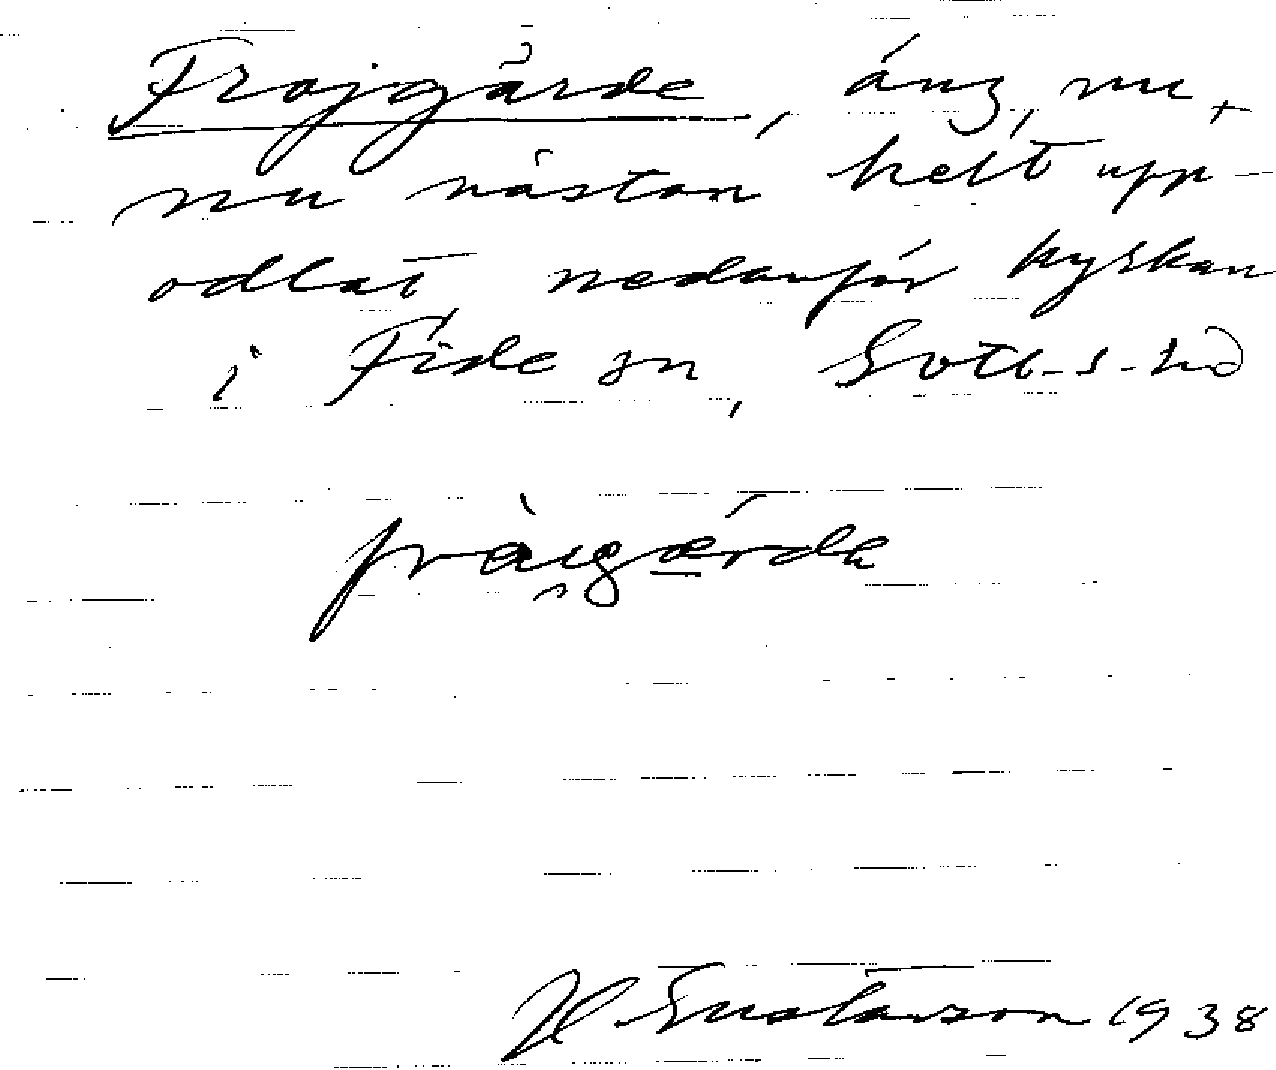 Frojgärde, äng, nu,
nu nästan helt upp-
odlat nedanför kyrkan
i Fide sn, Gotl-s-hd
fràigærde
H. Gustavson 1938